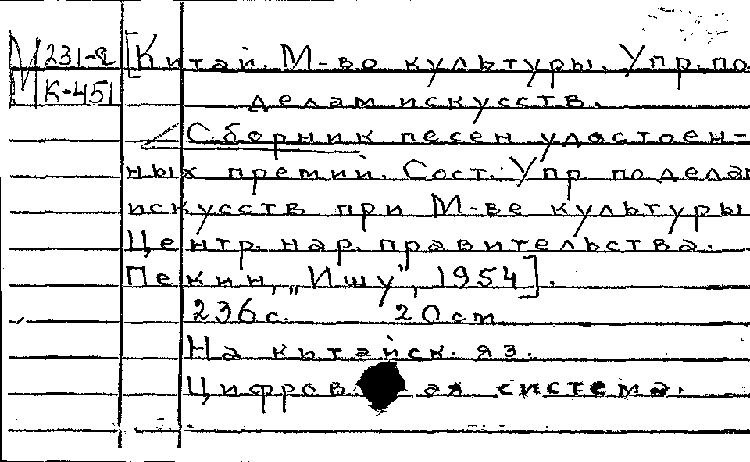 М 231-2 [Китай. М-во культуры. Упр. по
К-451 делам искусств.
Сборник песен удостоен-
ных премий. Сост. Упр по делам
искусств при М-ве культуры
Центр. нар. правительства.
Пекин, „Ишу", 1954].
236 с. 20 cm
На китайск. яз.
Цифровая система.